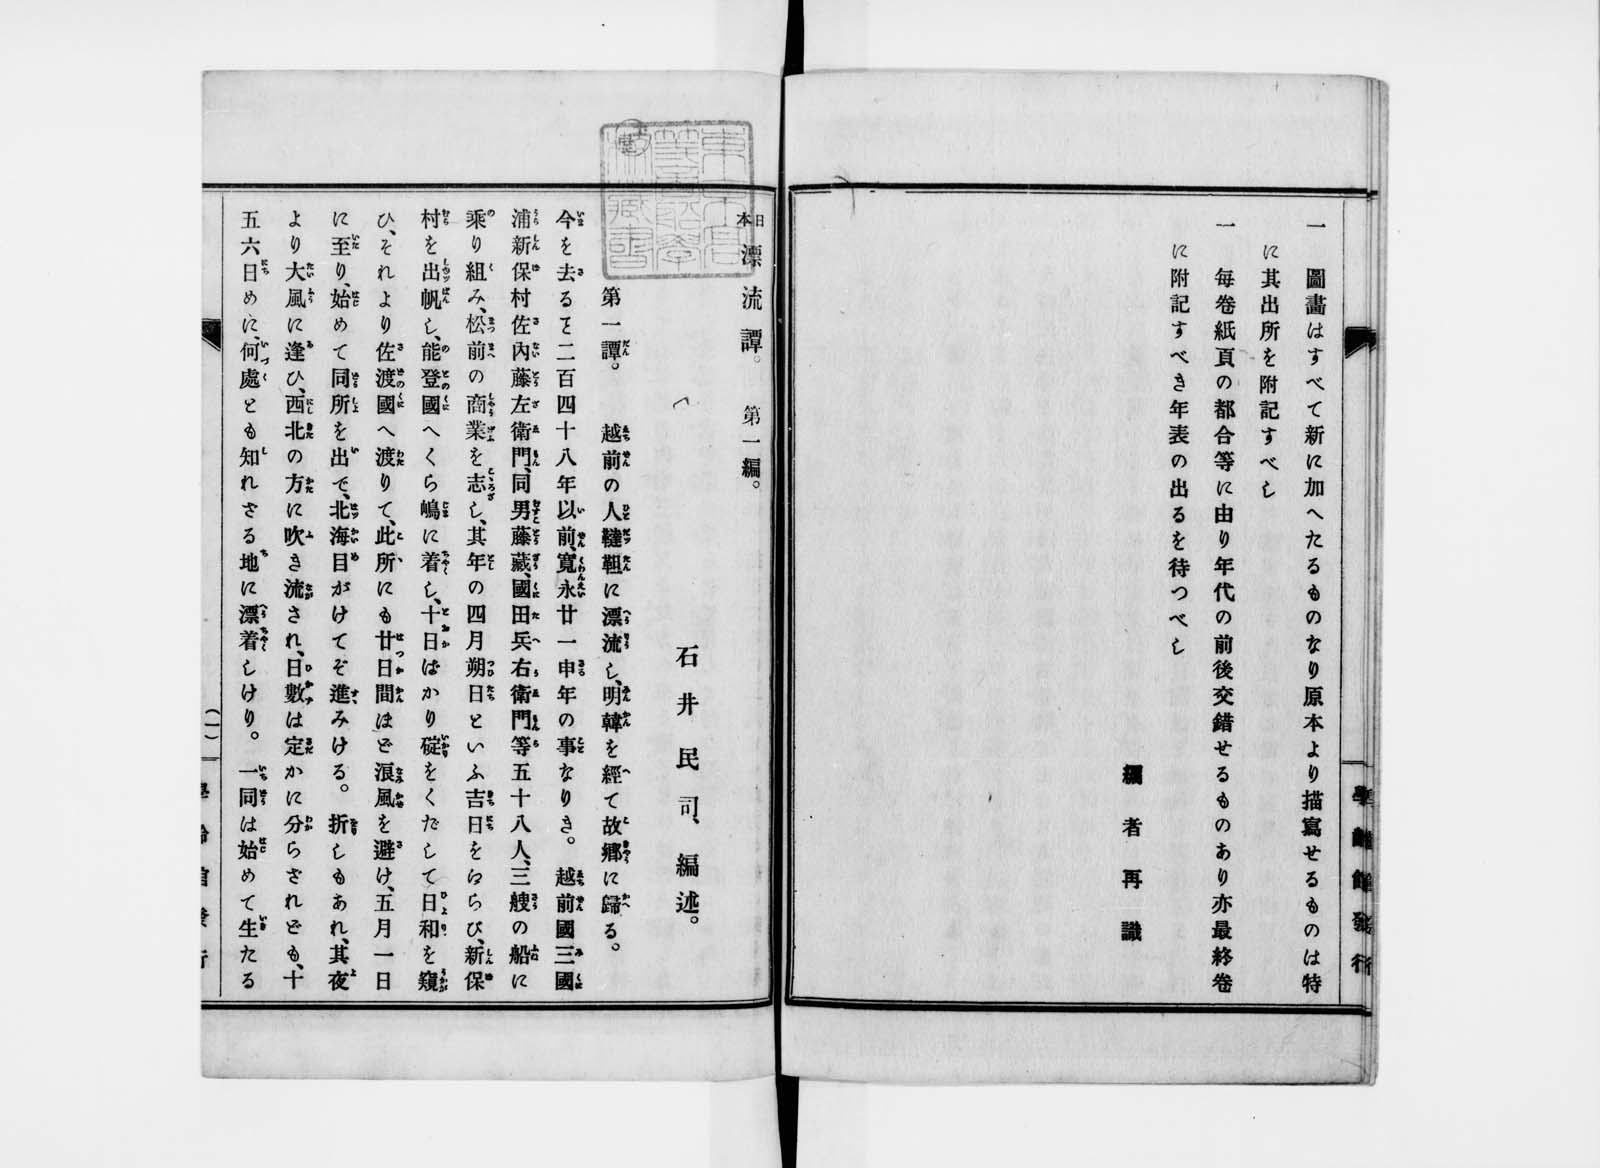 一　圖畵はすべて新に加へたるものなり原本より描寫せるものは特
に其出所を附記すべし
一　每卷紙頁の都合等に由り年代の前後交錯せるものあり亦最終卷
に附記すべき年表の出るを待つべし
編者再識
學齡館發行
日本漂流譚。　第一編。
石井民司、編述。
第一譚。　越前の人韃靼に漂流し、明韓を經て故鄕に歸る。
今を去るヿ二百四十八年以前、寬永廿一申年の事なりき。越前國三國
浦新保村佐內藤左衞門、同男藤藏、國田兵右衞門等五十八人、三艘の船に
乘り組み、松前の商業を志し、其年の四月朔日といふ吉日をえらび、新保
村を出帆し、能登國へくら嶋に着し、十日ばかり碇をくだして日和を窺
ひ、それより佐渡國へ渡りて、此所にも廿日間ほど浪風を避け、五月一日
に至り、始めて同所を出で、北海目がけてぞ進みける。折しもあれ、其夜
より大風に逢ひ、西北の方に吹き流され、日數は定かに分らざれども、十
五六日めに、何處とも知れざる地に漂着しけり。一同は始めて生たる
（一）
學齡館發行